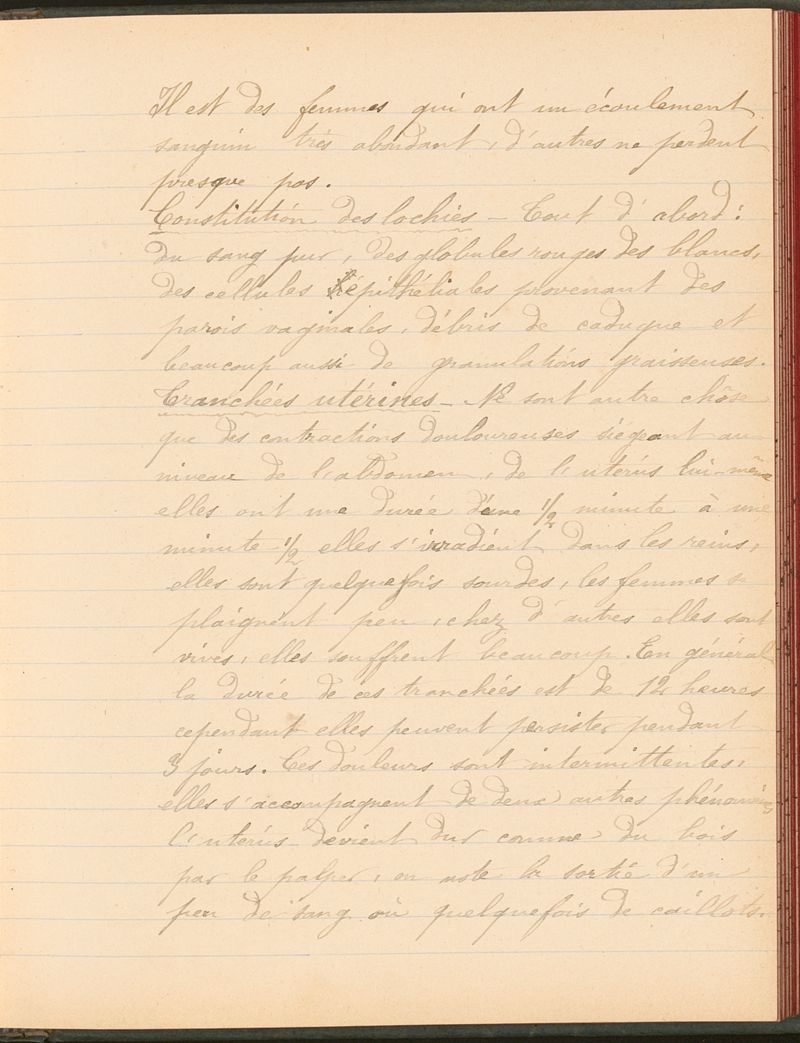 Il est des femmes qui ont un écoulement
sanguin très abondant, d'autres ne perdent
presque pas.
Constitution des lochies - Tout d'abord :
du sang pur, des globules rouges des blancs,
des cellules épithéliales provenant des
parois vaginales, débris de caduque et
beaucoup aussi de granulations graisseuses.
Tranchées utérines - Ne sont autre chôse
que des contractions douloureuses siégeant au
niveau de l'abdomen, de l'utérus lui-même
elles ont une durée d'une 1/2 minute à une
minute 1/2 elles s'irradient dans les reins,
elles sont quelquefois sourdes, les femmes se
plaignent peu, chez d'autres elles sont
vives, elles souffrent beaucoup. En général
la durée de ces tranchées est de 12 heures
cependant elles peuvent persister pendant
3 jours. Ces douleurs sont intermittentes,
elles s'accompagnent de deux autres phénomènes
l'utérus devient dur comme du bois
par le palper, on note la sortie d'un
peu de sang où quelquefois de caillots.